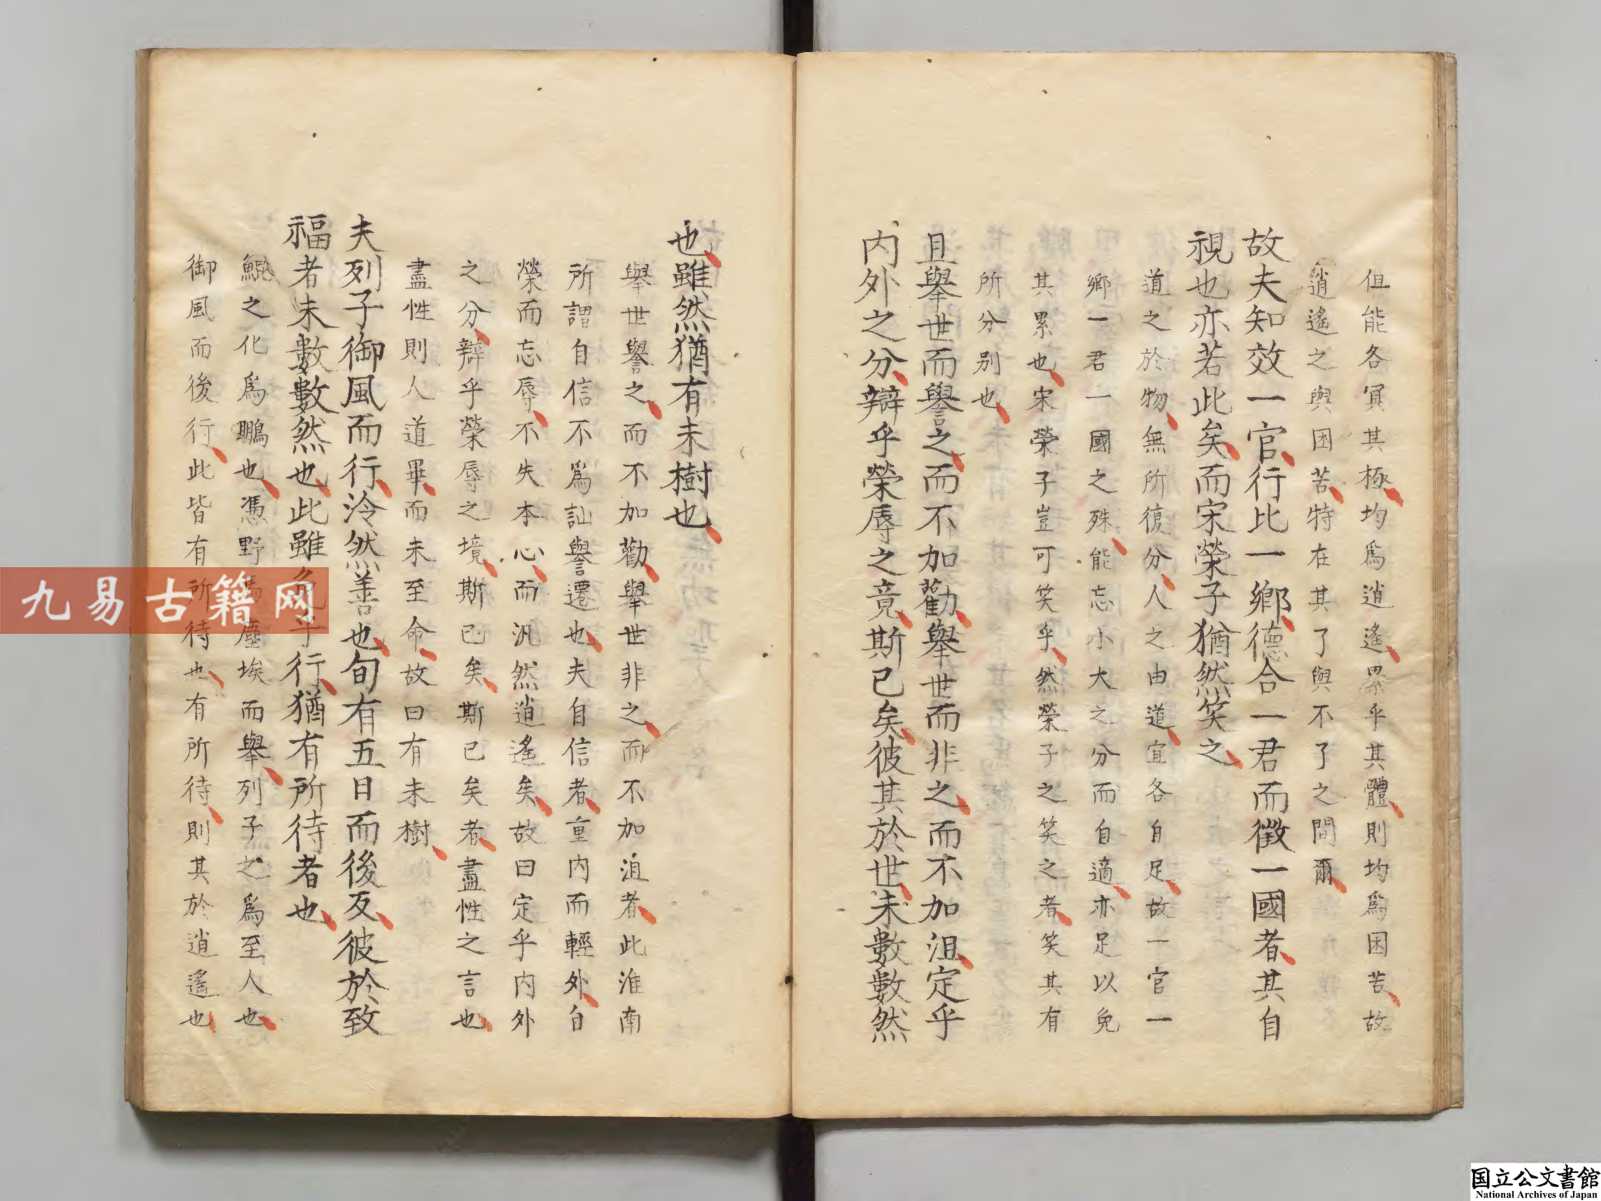 但能各冥其極均爲逍遙累乎其體則均爲困苦故
逍遙之與困苦特在其了與不了之間爾
故夫知效一官行比一鄉德合一君而徵一國者其自
視也亦若此矣而宋榮子猶然笑之
道之於物無所復分人之由道宜各自足故一官一
鄉一君一國之殊能忘小大之分而自適亦足以免
其累也宋榮子豈可笑乎然榮子之笑之者笑其有
所分別也
且擧世而譽之而不加勸擧世而非之而不加沮定乎
内外之分辯乎榮辱之竟斯已矣彼其於世未數數然
也雖然猶有未樹也
擧世譽之而不加勸擧世非之而不加沮者此淮南
所謂自信不爲訕譽遷也夫自信者重内而輕外自
榮而忘辱不失本心而汎然逍遙矣故曰定乎内外
之分辯乎榮辱之境斯已矣斯已矣者盡性之言也
盡性則人道畢而未至命故曰有未樹
夫列子御風而行泠然善也旬有五日而後反彼於致
福者未數數然也此雖免乎行猶有所待者也
鯤之化爲鵬也憑野馬塵埃而擧列子之爲至人也
御風而後行此皆有所待也有所待則其於逍遙也
九易古籍网
国立公文書館
National Archives of Japan